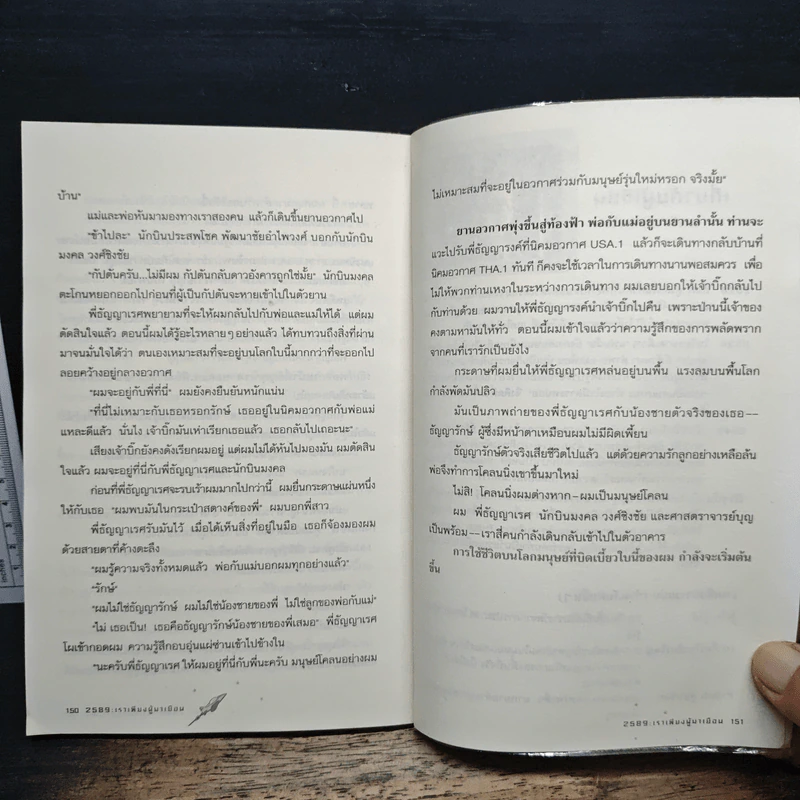 บ้าน"
แม่และพ่อหันมามองทางเราสองคน แล้วก็เดินขึ้นยานอวกาศไป
"ข้าไปละ" นักบินประสพโชค พัฒนาชัยอำไพวงศ์ บอกกับนักบิน
มงคล วงศ์ชิงชัย
"กัปตันครับ...ไม่มีผม กัปตันกลับดาวอังคารถูกใช่มั้ย" นักบินมงคล
ตะโกนหยอกออกไปก่อนที่ผู้เป็นกัปตันจะหายเข้าไปในตัวยาน
พี่ธัญญาเรศพยายามที่จะให้ผมกลับไปกับพ่อและแม่ให้ได้ แต่ผม
ตัดสินใจแล้ว ตอนนี้ผมได้รู้อะไรหลายๆอย่างแล้ว ได้ทบทวนถึงสิ่งที่ผ่าน
มาจนมั่นใจได้ว่า ตนเองเหมาะสมที่จะอยู่บนโลกใบนี้มากกว่าที่จะออกไป
ลอยคว้างอยู่กลางอวกาศ
"ผมจะอยู่กับพี่ที่นี่" ผมยังคงยืนยันหนักแน่น
"ที่นี่ไม่เหมาะกับเธอหรอกรักษ์ เธออยู่ในนิคมอวกาศกับพ่อแม่
แหละดีแล้ว นั่นไง เจ้าบิ๊กมันเห่าเรียกเธอแล้ว เธอกลับไปเถอะนะ"
เสียงเจ้าบิ๊กยังคงดังเรียกผมอยู่ แต่ผมไม่ได้หันไปมองมัน ผมตัดสิน
ใจแล้ว ผมจะอยู่ที่นี่กับพี่ธัญญาเรศและนักบินมงคล
ก่อนที่พี่ธัญญาเรศจะรบเร้าผมมากไปกว่านี้ ผมยื่นกระดาษแผ่นหนึ่ง
ให้กับเธอ "ผมพบมันในกระเป๋าสตางค์ของพี่" ผมบอกพี่สาว
พี่ธัญญาเรศรับมันไว้ เมื่อได้เห็นสิ่งที่อยู่ในมือ เธอก็จ้องมองผม
ด้วยสายตาที่ค้างตะลึง
"ผมรู้ความจริงทั้งหมดแล้ว พ่อกับแม่บอกผมทุกอย่างแล้ว"
"รักษ์"
"ผมไม่ใช่ธัญญารักษ์ ผมไม่ใช่น้องชายของพี่ ไม่ใช่ลูกของพ่อกับแม่"
"ไม่ เธอเป็น! เธอคือธัญญารักษ์น้องชายของพี่เสมอ" พี่ธัญญาเรศ
โผเข้ากอดผม ความรู้สึกอบอุ่นแผ่ซ่านเข้าไปข้างใน
"นะครับพี่ธัญญาเรศ ให้ผมอยู่ที่นี่กับพี่นะครับ มนุษย์โคลนอย่างผม
150 2589:เราเพียงผู้มาเยือน
ไม่เหมาะสมที่จะอยู่ในอวกาศร่วมกับมนุษย์รุ่นใหม่หรอก จริงมั้ย"
ยานอวกาศพุ่งขึ้นสู่ท้องฟ้า พ่อกับแม่อยู่บนยานลำนั้น ท่านจะ
แวะไปรับพี่ธัญญารงค์ที่นิคมอวกาศ USA.1 แล้วก็จะเดินทางกลับบ้านที่
นิคมอวกาศ THA.1 ทันที ก็คงจะใช้เวลาในการเดินทางนานพอสมควร เพื่อ
ไม่ให้พวกท่านเหงาในระหว่างการเดินทาง ผมเลยบอกให้เจ้าบิ๊กกลับไป
กับท่านด้วย ผมวานให้พี่ธัญญารงค์นำเจ้าบิ๊กไปคืน เพราะป่านนี้เจ้าของ
คงตามหามันให้ทั่ว ตอนนี้ผมเข้าใจแล้วว่าความรู้สึกของการพลัดพราก
จากคนที่เรารักเป็นยังไง
กระดาษที่ผมยื่นให้พี่ธัญญาเรศหล่นอยู่บนพื้น แรงลมบนพื้นโลก
กำลังพัดมันปลิว
มันเป็นภาพถ่ายของพี่ธัญญาเรศกับน้องชายตัวจริงของเธอ--
ธัญญารักษ์ ผู้ซึ่งมีหน้าตาเหมือนผมไม่มีผิดเพี้ยน
ธัญญารักษ์ตัวจริงเสียชีวิตไปแล้ว แต่ด้วยความรักลูกอย่างเหลือล้น
พ่อจึงทำการโคลนนิ่งเขาขึ้นมาใหม่
ไม่สิ! โคลนนิ่งผมต่างหาก-ผมเป็นมนุษย์โคลน
ผม พี่ธัญญาเรศ นักบินมงคล วงศ์ชิงชัย และศาสตราจารย์บุญ
เป็นพร้อม--เราสี่คนกำลังเดินกลับเข้าไปในตัวอาคาร
การใช้ชีวิตบนโลกมนุษย์ที่บิดเบี้ยวใบนี้ของผม กำลังจะเริ่มต้น
ขึ้น
2589:เราเพียงผู้มาเยือน 151